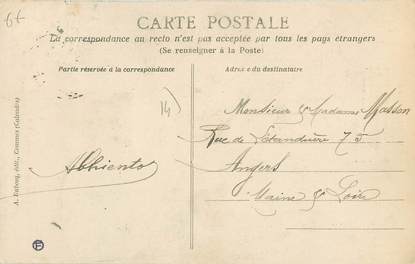 6f
CARTE POSTALE
La correspondance au recto n'est pas acceptée par tous les pays étrangers
(Se renseigner à la Poste)
Partie réservée à la correspondance
Adresse du destinataire
14)
Monsieur & Madame Masson
Rue de Létanduère 75
Angers
Maine & Loire
A. Dubosq, édit., Cormes (Calvados)